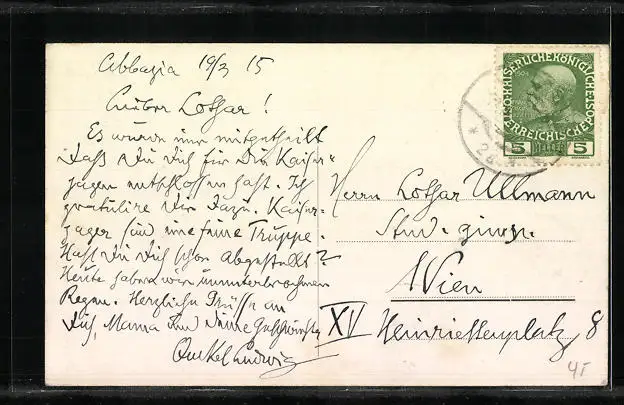 Abbazia 19/3 15
Lieber Lothar!
Es wurde mir mitgetheilt
dass du dich für die Kaiser=
jäger entschlossen hast. Ich
gratulire dir dazu. Kaiser-
jäger sind eine feine Truppe.
Hast du dich schon abgestellt?
Heute haben wir ununterbrochenen
Regen. Herzliche Grüsse an
dich, Mama und deine Geschwister
Onkel Ludwig
KAISERLICHE KÖNIGLICHE
ÖSTERREICHISCHE
5 HELLER 5
Herrn Lothar Ullmann
Stud.
Wien
XV Henriettenplatz 8